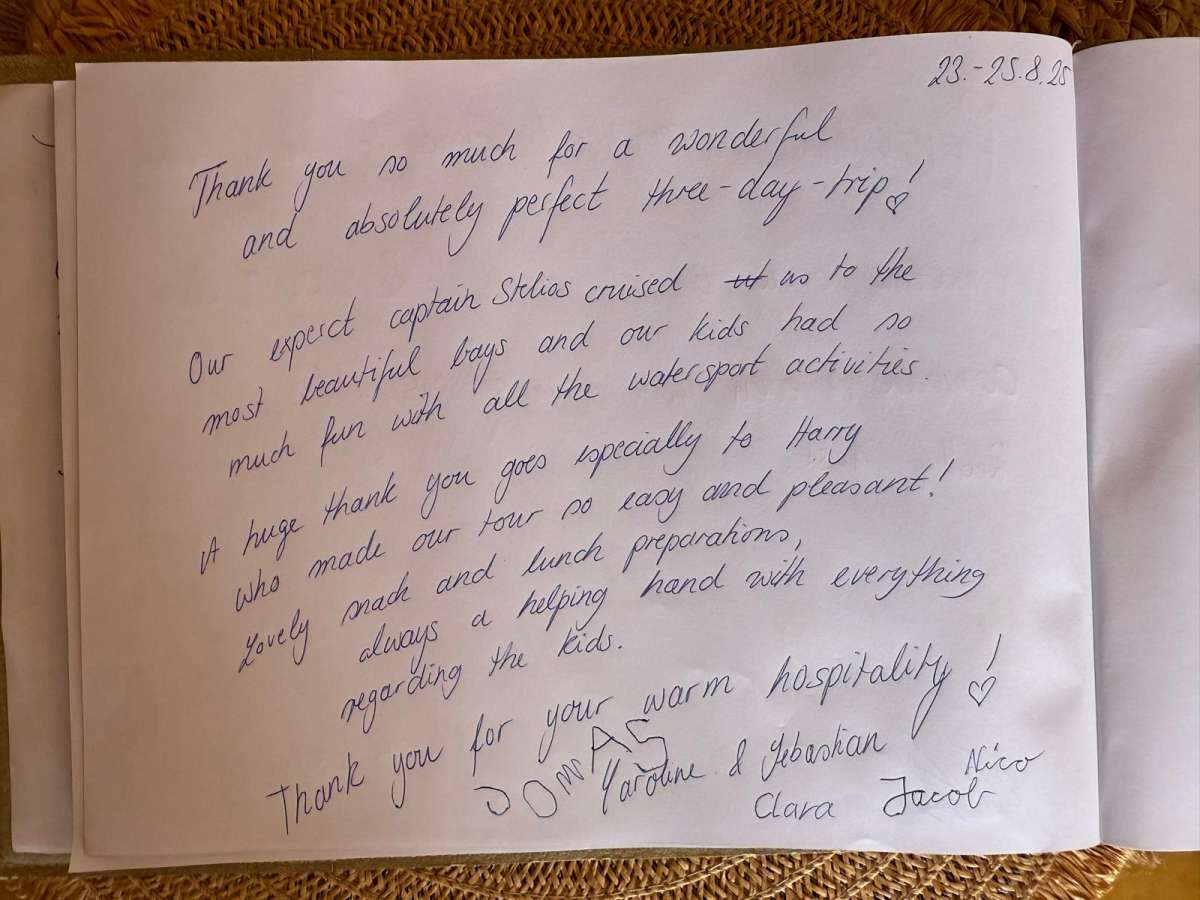 23.-25.8.25
Thank you so much for a wonderful
and absolutely perfect three-day-trip!♡
Our experct captain Stelios cruised us to the
most beautiful bays and our kids had so
much fun with all the watersport activities.
A huge thank you goes especially to Harry
who made our tour so easy and pleasant!
Lovely snack and lunch preparations,
always a helping hand with everything
regarding the kids.
Thank you for your warm hospitality!♡
& Sebastian
Nico
Clara Jacob